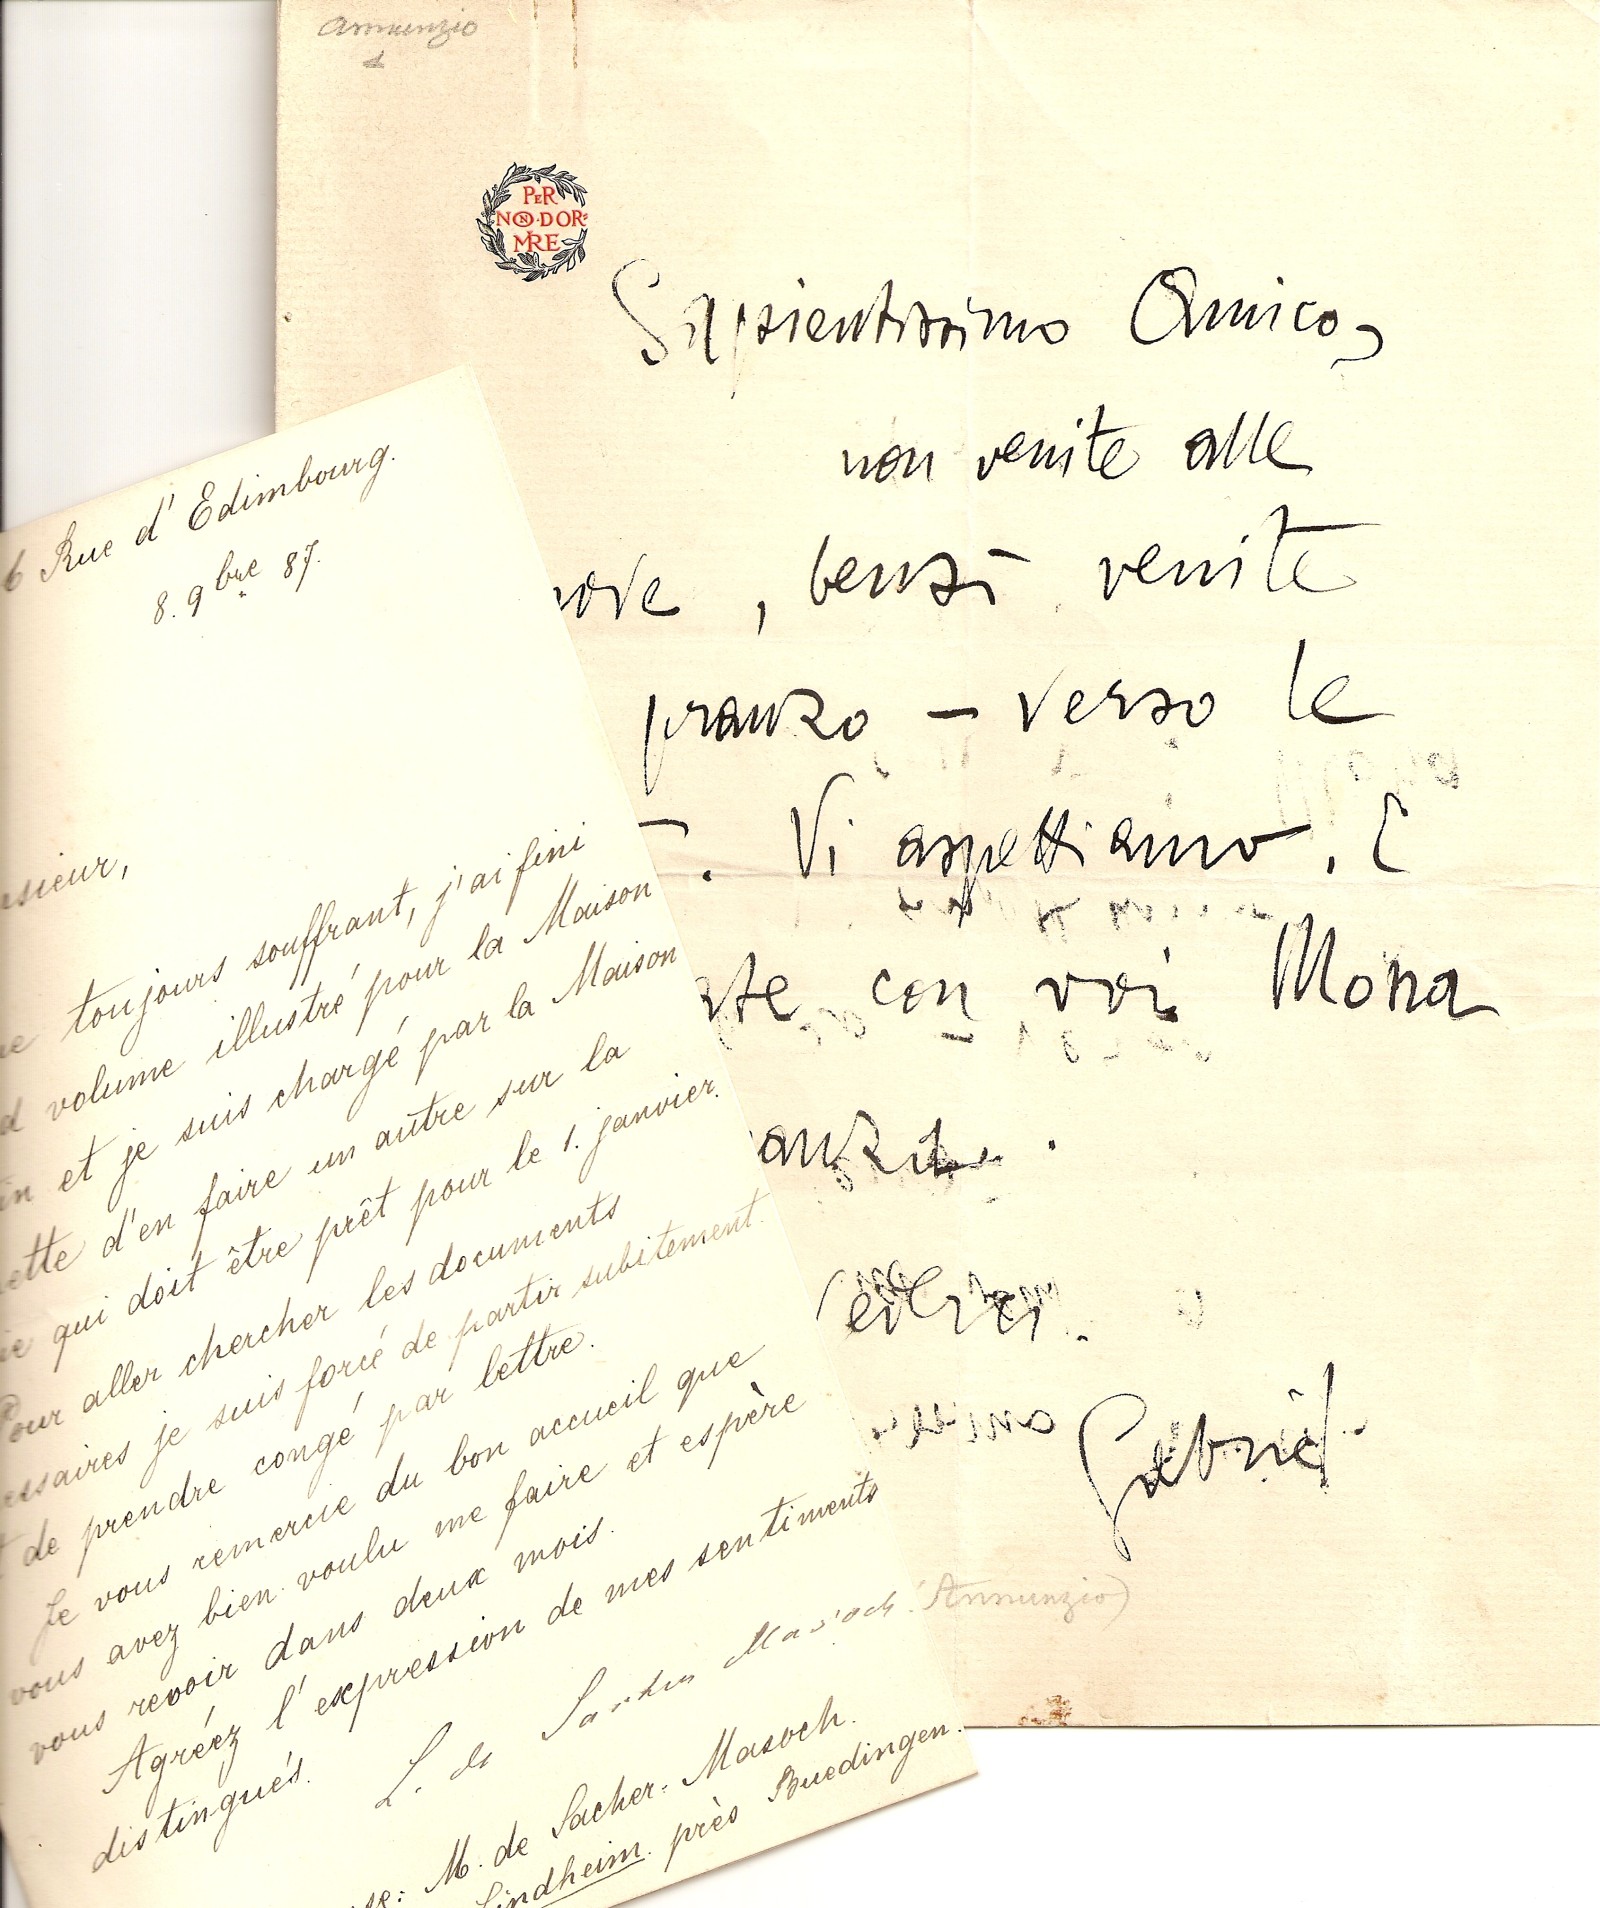 Annunzio
PER
NON·DOR=
MIRE
Sapientissimo Amico,
non venite alle
nove, bensì venite
pranzo – verso le
. Vi aspettiamo. E
con voi Mona
.
Gabriel
(Annunzio)
6 Rue d'Edimbourg.
8. 9bre 87.
sieur,
toujours souffrant, j'ai fini
d volume illustré pour la Maison
in et je suis chargé par la Maison
ette d'en faire un autre sur la
ie qui doit être prêt pour le 1. janvier.
Pour aller chercher les documents
essaires je suis forcé de partir subitement
t de prendre congé par lettre.
Je vous remercie du bon accueil que
vous avez bien voulu me faire et espère
vous revoir dans deux mois.
Agréez l'expression de mes sentiments
distingués.
L. de Sacher Masoch
se: M. de Sacher-Masoch.
Lindheim. près Buedingen.